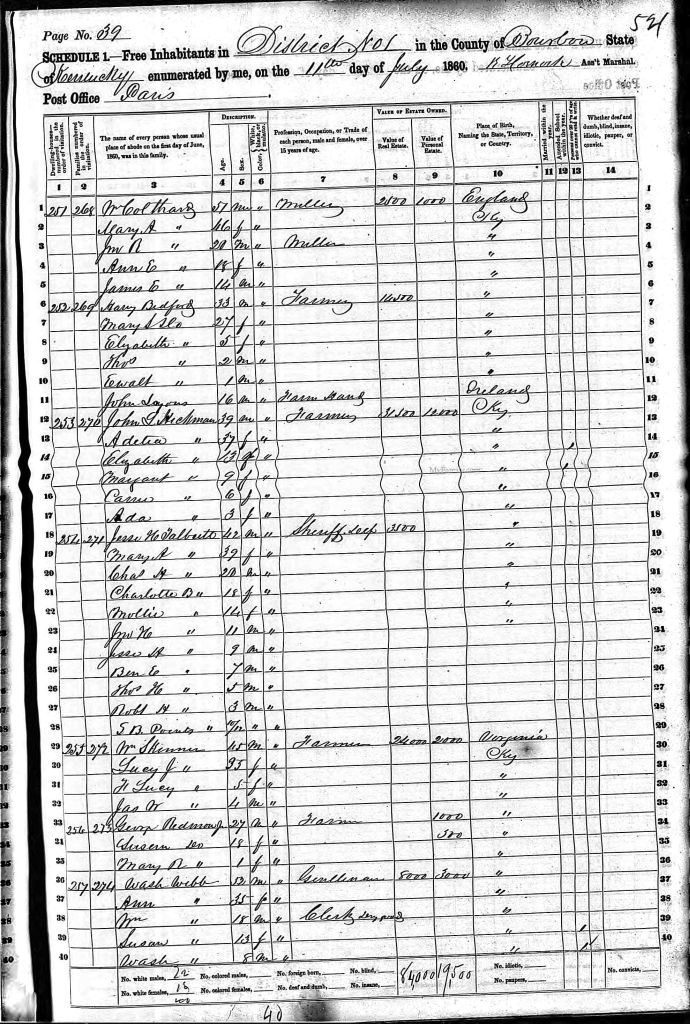 Page No. 39
521
SCHEDULE 1.—Free Inhabitants in District No 1 in the County of Bourbon State
of Kentucky enumerated by me, on the 11th day of July 1860. Ass't Marshal.
Post Office Paris
DESCRIPTION. VALUE OF ESTATE OWNED.
Dwelling-houses—numbered in the order of visitation.
Families numbered in the order of visitation.
The name of every person whose usual place of abode on the first day of June, 1860, was in this family.
Age. Sex. Color,
Profession, Occupation, or Trade of each person, male and female, over 15 years of age.
Value of Real Estate. Value of Personal Estate.
Place of Birth, Naming the State, Territory, or Country.
Married within the year. Attended School within the year.
Whether deaf and dumb, blind, insane, idiotic, pauper, or convict.
1 2 3 4 5 6 7 8 9 10 11 12 13 14
1 251 268 W Colthard 51 m " Miller 2500 1000 England 1
2 Mary A " 46 f " Ky 2
3 Jno R " 20 m " Miller " 3
4 Ann E " 18 f " " 4
5 James E " 14 m " " 5
6 252 269 Harry Bedford 33 m " Farmer 14500 " 6
7 Mary S Do 27 f " " 7
8 Elizabeth " 5 f " " 8
9 Thos " 2 m " " 9
10 Ewalt " 1 m " " 10
11 John Lyons 16 m " Farm Hand Ireland 11
12 253 270 John L Hickman 39 m " Farmer 31500 12000 Ky 12
13 Adelia " 37 f " " 13
14 Elizabeth " 13 f " " 1 14
15 Margaret " 9 f " " 1 15
16 Carrie " 6 f " " 16
17 Ada " 3 f " " 17
18 254 271 Jesse H Talbott 42 m " Sheriff 3500 " 18
19 Mary A " 39 f " " 19
20 Chas H " 20 m " " 20
21 Charlotte B " 18 f " " 21
22 Mollie " 14 f " " 22
23 Jno H " 11 m " " 23
24 Jesse H " 9 m " 24
25 Ben E " 7 m " 25
26 Thos H " 5 m " 26
27 Robt H " 3 m " 27
28 S B Points " " " 28
29 255 272 Wm Skinner 45 m " Farmer 24000 2000 Virginia 29
30 Lucy J " 35 f " Ky 30
31 H Lucy " 5 f " " 31
32 Jas W " 4 m " " 32
33 256 273 George Redmon Jr 27 m " Farmer 1000 " 33
34 Susern Do 18 f " 500 " 34
35 Mary R " 1 f " " 35
36 257 274 Wash Webb 52 m " Gentleman 8000 3000 " 36
37 Ann " 35 f " " 37
38 Wm " 18 m " Clerk " 38
39 Susan " 13 f " " 1 39
40 Wash " 8 m " " 1 40
No. white males, 22 No. colored males, No. foreign born, No. blind, 84,000 19,500 No. idiotic, No. convicts,
No. white females, 18 No. colored females, No. deaf and dumb, No. insane, No. paupers,
40